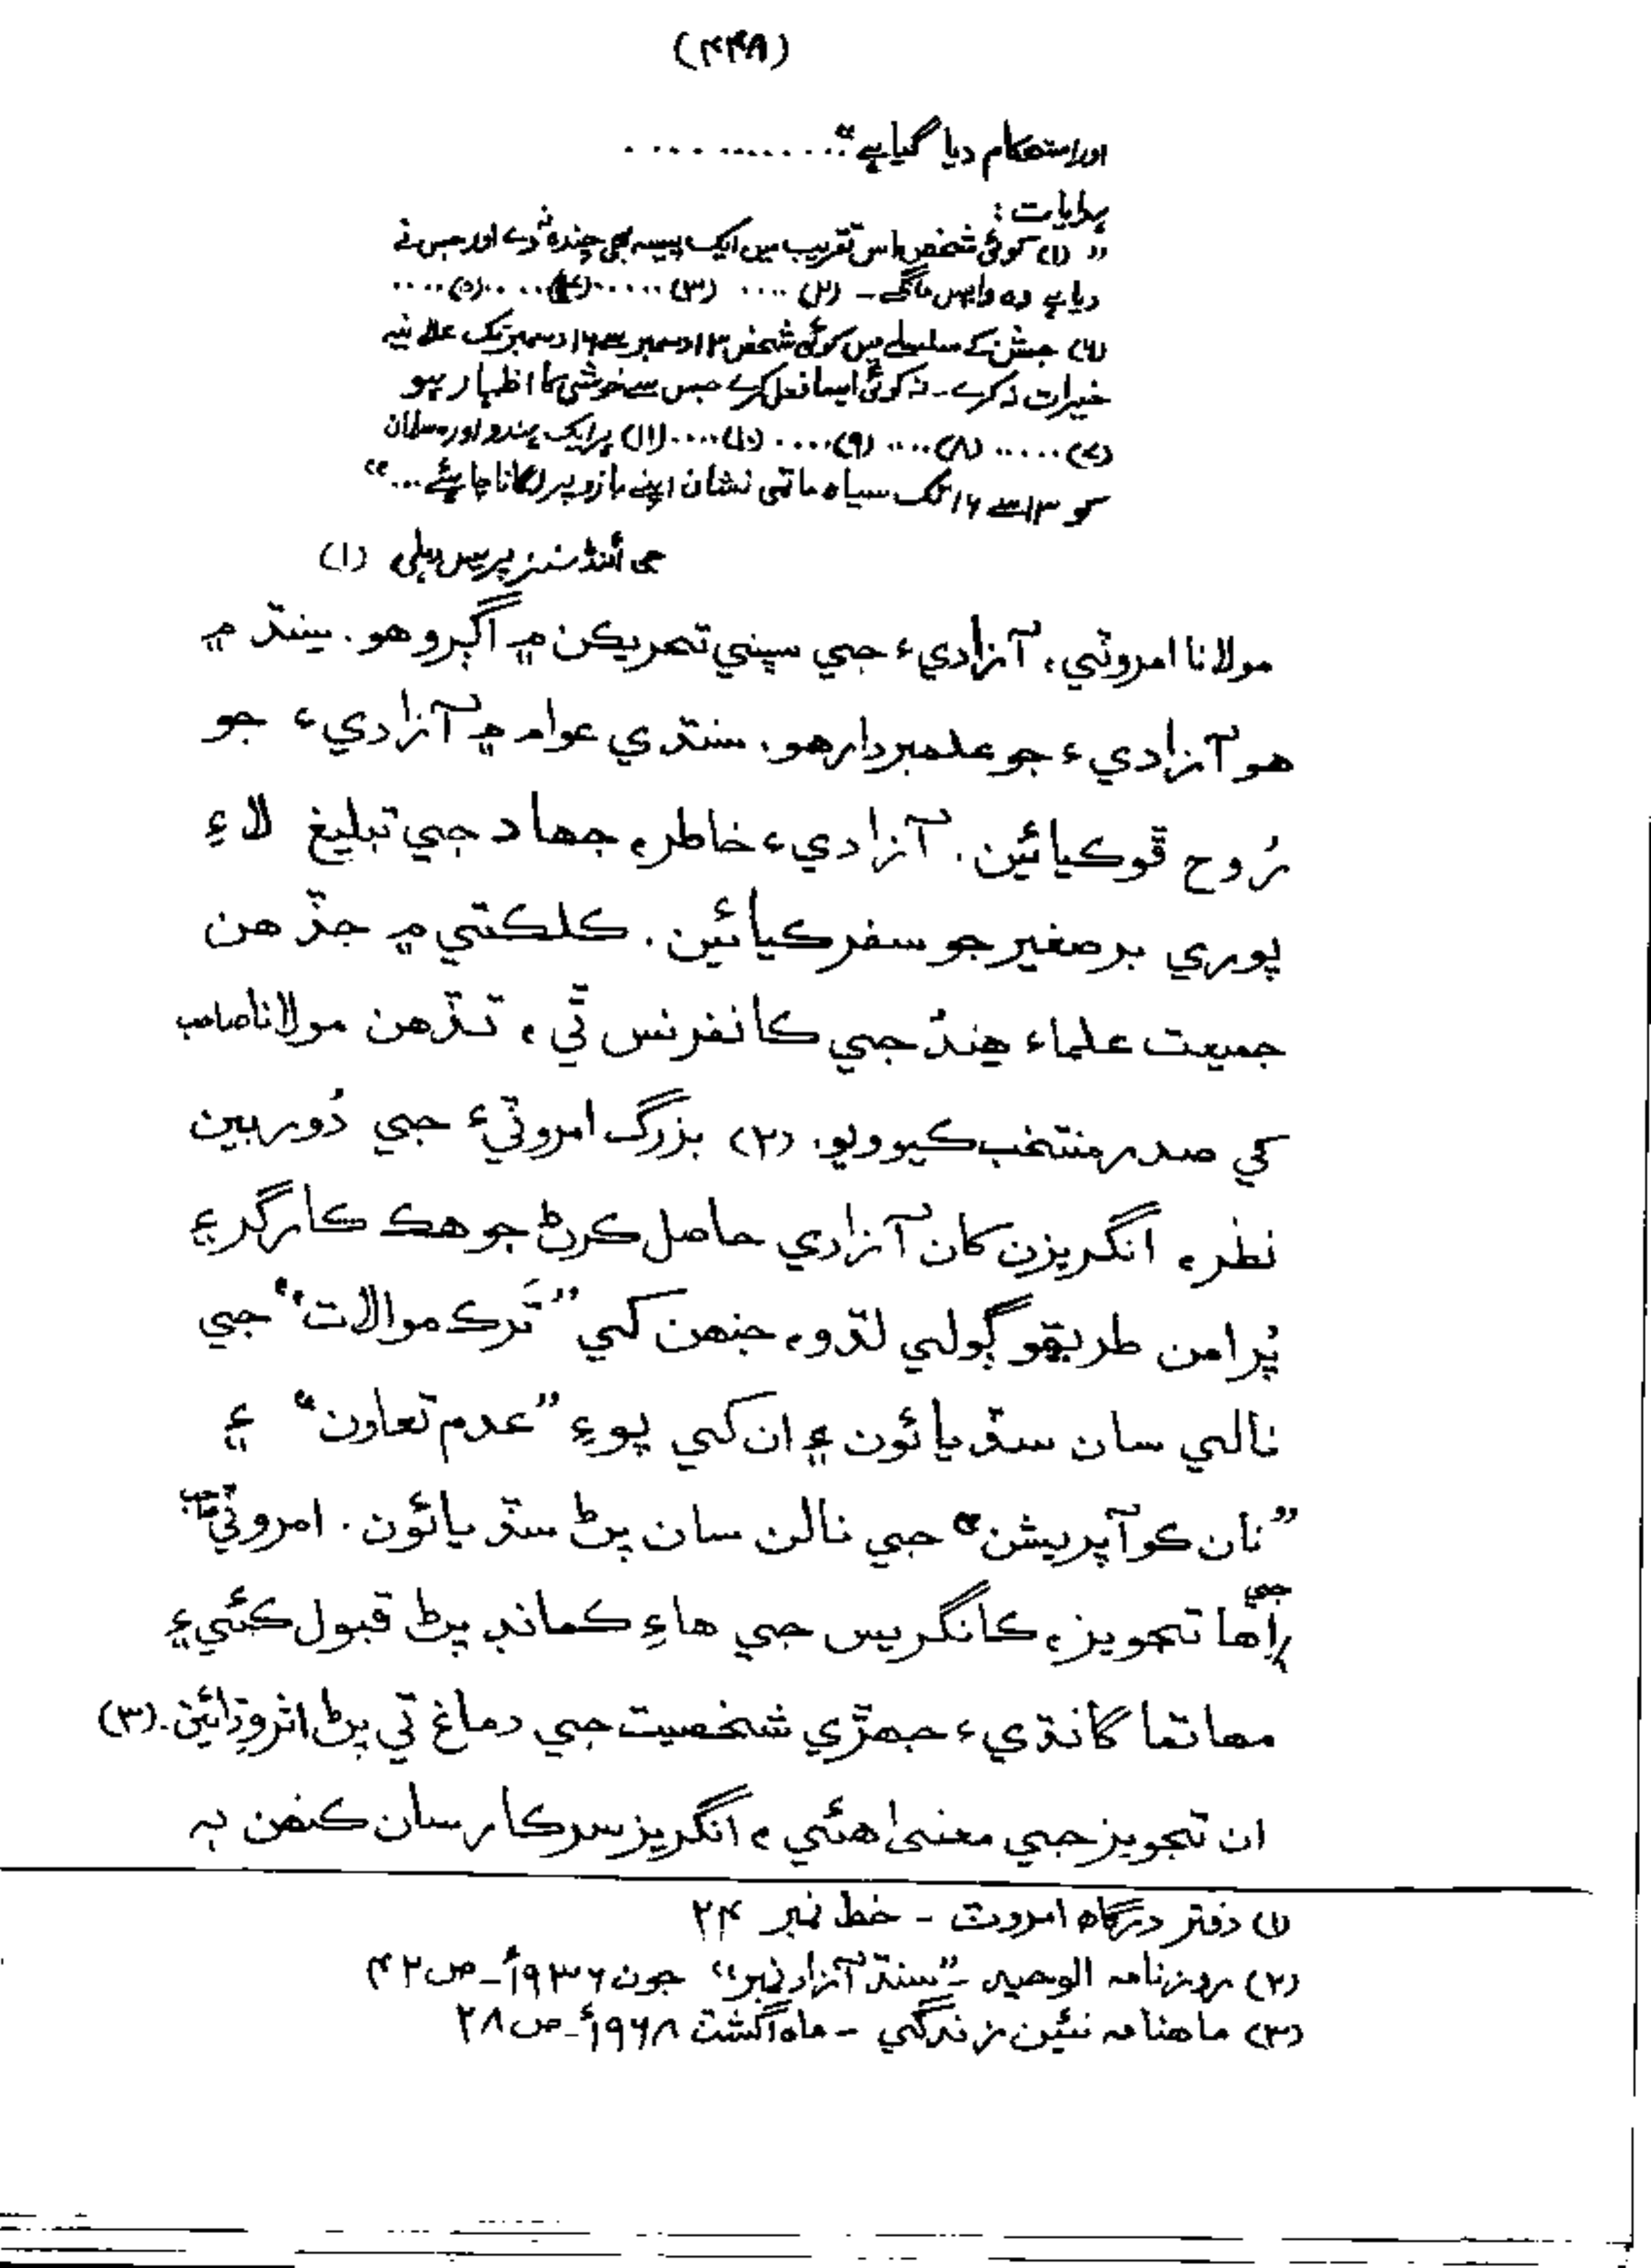 (۴۴۸)
اور استحکام دیا گیا ہے“ . . . . . . . . . . . .
ہدایات :
” (۱) کوئی شخص اس تقریب میں ایک پیسہ بھی چندہ نہ دے اور جس نے
دیا ہے وہ واپس مانگے ۔ (۲) .... (۳) ...... (۴) ..... (۵) ....
(۶) جشن کے سلسلے میں کوئی شخص ۱۳ دسمبر سے ۱۶ دسمبر تک علانیہ
خیرات نہ کرے ۔ نہ کوئی ایسا فعل کرے جس سے خوشی کا اظہار ہو
(۷) ...... (۸) .... (۹) .... (۱۰) .... (۱۱) ہر ایک ہندو اور مسلمان
کو ۱۳ سے ۱۶ تک سیاہ ماتمی نشان اپنے بازو پر لگانا چاہئے ...“
جی اَئنڈ سنز پریس دہلی (۱)
مولانا امروٽي، آزاديءَ جي سڀني تحريڪن ۾ اڳڀرو هو. سنڌ ۾
هو آزاديءَ جو علمبردار هو. سنڌي عوام ۾ آزاديءَ جو
رُوح ڦوڪيائين. آزاديءَ خاطر، جهاد جي تبليغ لاءِ
پوري برصغير جو سفر ڪيائين. ڪلڪتي ۾ جڏهن
جميعت علماء هندُ جي ڪانفرنس ٿي، تڏهن مولانا صاحب
کي صدر منتخب ڪيو ويو. (۲) بزرگ امروٽيءَ جي دُور بين
نظر، انگريزن کان آزادي حاصل ڪرڻ جو هڪ ڪارگر ۽
پُرامن طريقو ڳولي لڌو، جنهن کي ”تَرڪ موالات“ جي
نالي سان سڏيائون ۽ ان کي پوءِ ”عدم تعاون“ ۽
”نان ڪو آپريشن“ جي نالن سان پڻ سڏيائون. امروٽي صاحب
جي اها تجويز، ڪانگريس جي هاءِ ڪمانڊ پڻ قبول ڪئي ۽
مهاتما گانڌيءَ جهڙي شخصيت جي دماغ تي پڻ اثر وڌائين. (۳)
ان تجويز جي معنيٰ هئي، انگريز سرڪار سان ڪنهن به
(۱) دفتر درگاه امروٽ - خط نمبر ۲۴
(۲) روزنامه الوحيد - ”سنڌ آزاد نمبر“ جون ۱۹۳۶ع - ص ۴۲
(۳) ماهنامه نئين زندگي - ماه آگسٽ ۱۹۶۸ع - ص ۲۸